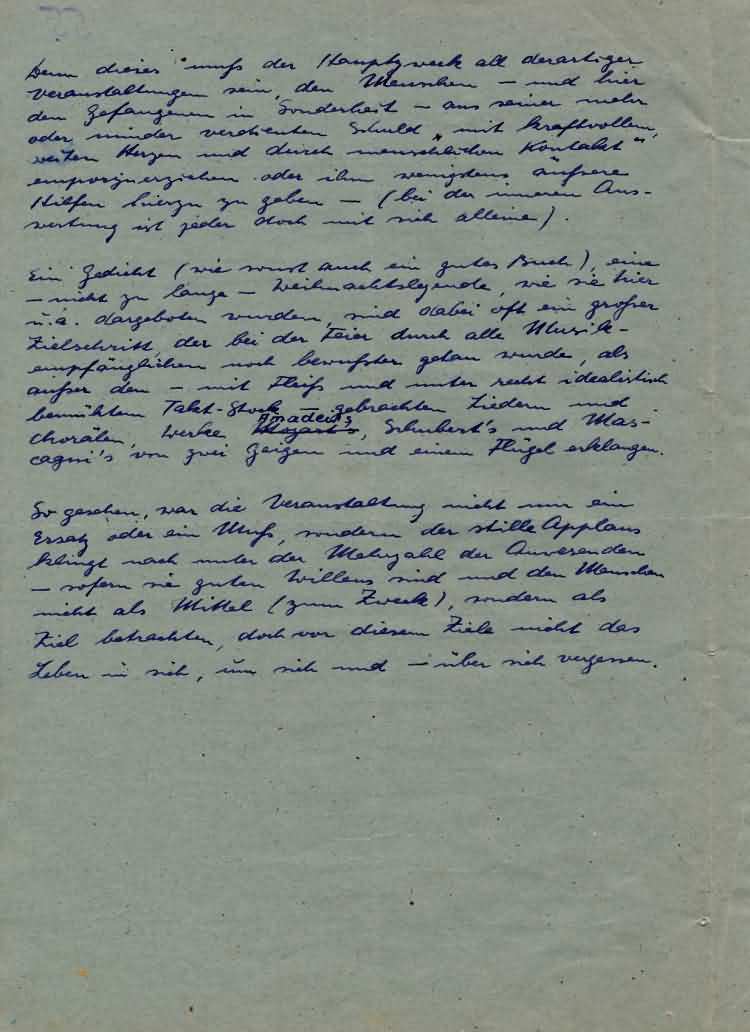 Denn dieses muß der Hauptzweck all derartiger
Veranstaltungen sein, den Menschen – und hier
den Gefangenen in Sonderheit – aus seiner mehr
oder minder verdienten Schuld „mit kraftvollem,
weiten Herzen und durch menschlichen Kontakt"
emporzuerziehen oder ihm wenigstens äußere
Hilfen hierzu zu geben – (bei der inneren Aus-
wertung ist jeder doch mit sich alleine).
Ein Gedicht (wie sonst auch ein gutes Buch), eine
– nicht zu lange – Weihnachtslegende, wie sie hier
u.a. dargeboten wurden, sind dabei oft ein großer
Zielschritt, der bei der Feier durch alle Musik-
empfänglichen noch bewußter getan wurde, als
außer den – mit Fleiß und unter recht idealistisch
bemühtem Takt-Stock – gebrachten Liedern und
Chorälen, Werke Amadeus, Schubert's und Mas-
cagni's von zwei Geigen und einem Flügel erklangen.
So gesehen, war die Veranstaltung nicht nur ein
Ersatz oder ein Muß, sondern der stille Applaus
klingt nach unter der Mehrzahl der Anwesenden
– sofern sie guten Willens sind und den Menschen
nicht als Mittel (zum Zweck), sondern als
Ziel betrachten, doch vor diesem Ziele nicht das
Leben in sich, um sich und – über sich vergessen.